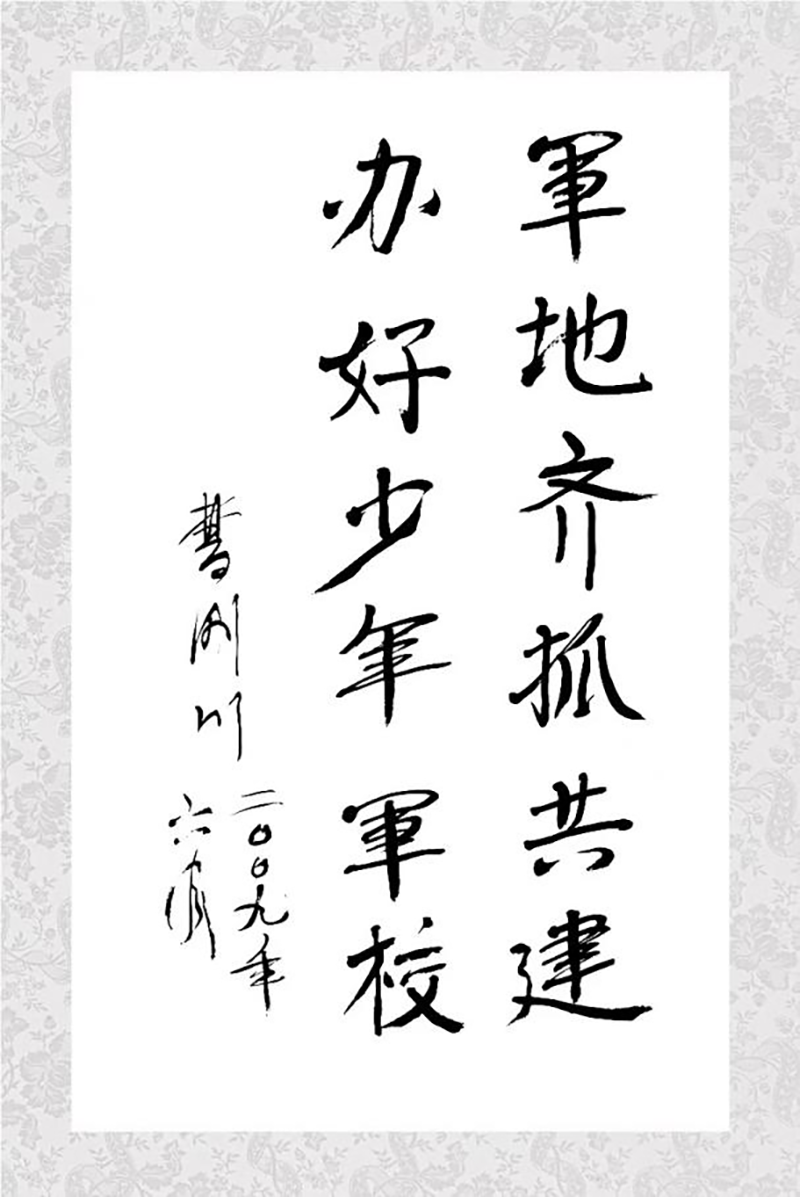 軍地齐抓共建
办好少年軍校
曹刚川
二〇〇九年
六月